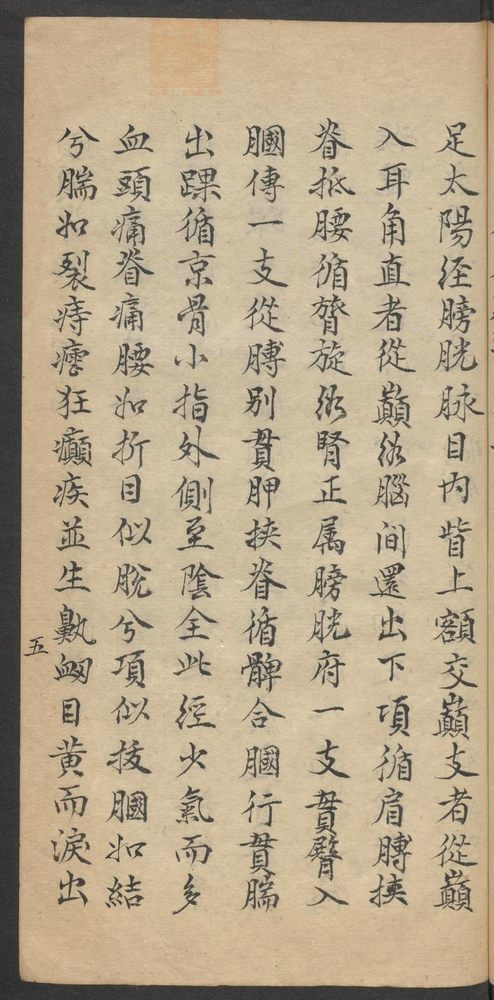 足太陽経膀胱脉目内眥上額交巔支者從巔
入耳角直者從巔絡腦間還出下項循肩膊挾
脊抵腰循膂旋絡腎正属膀胱府一支貫臀入
膕傳一支從膊別貫胛挾脊循髀合膕行貫腨
出踝循京骨小指外側至陰全此経少氣而多
血頭痛脊痛腰如折目似脫兮項似拔膕如結
兮腨如裂痔瘧狂癲疾並生鼽衂目黄而淚出
五